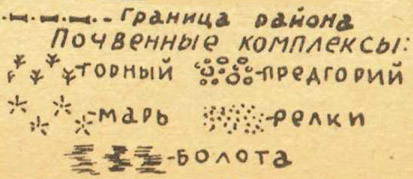 Граница района
Почвенные комплексы:
горный предгорий
марь релки
болота